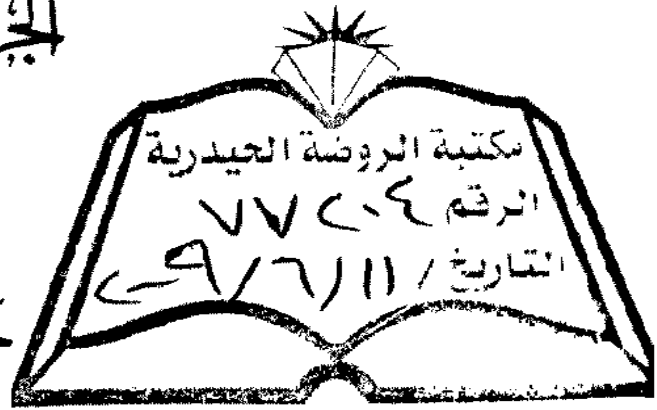 مكتبة الروضة الحيدرية
الرقم ٧٧٢٠٤
التاريخ / ١١/٦/٢٠٠٩